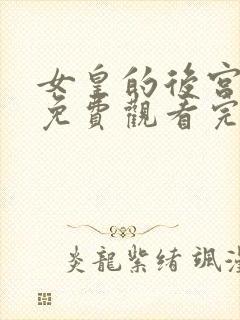 女皇的後宮
免費觀看完
炎龍紫緒 颯漫